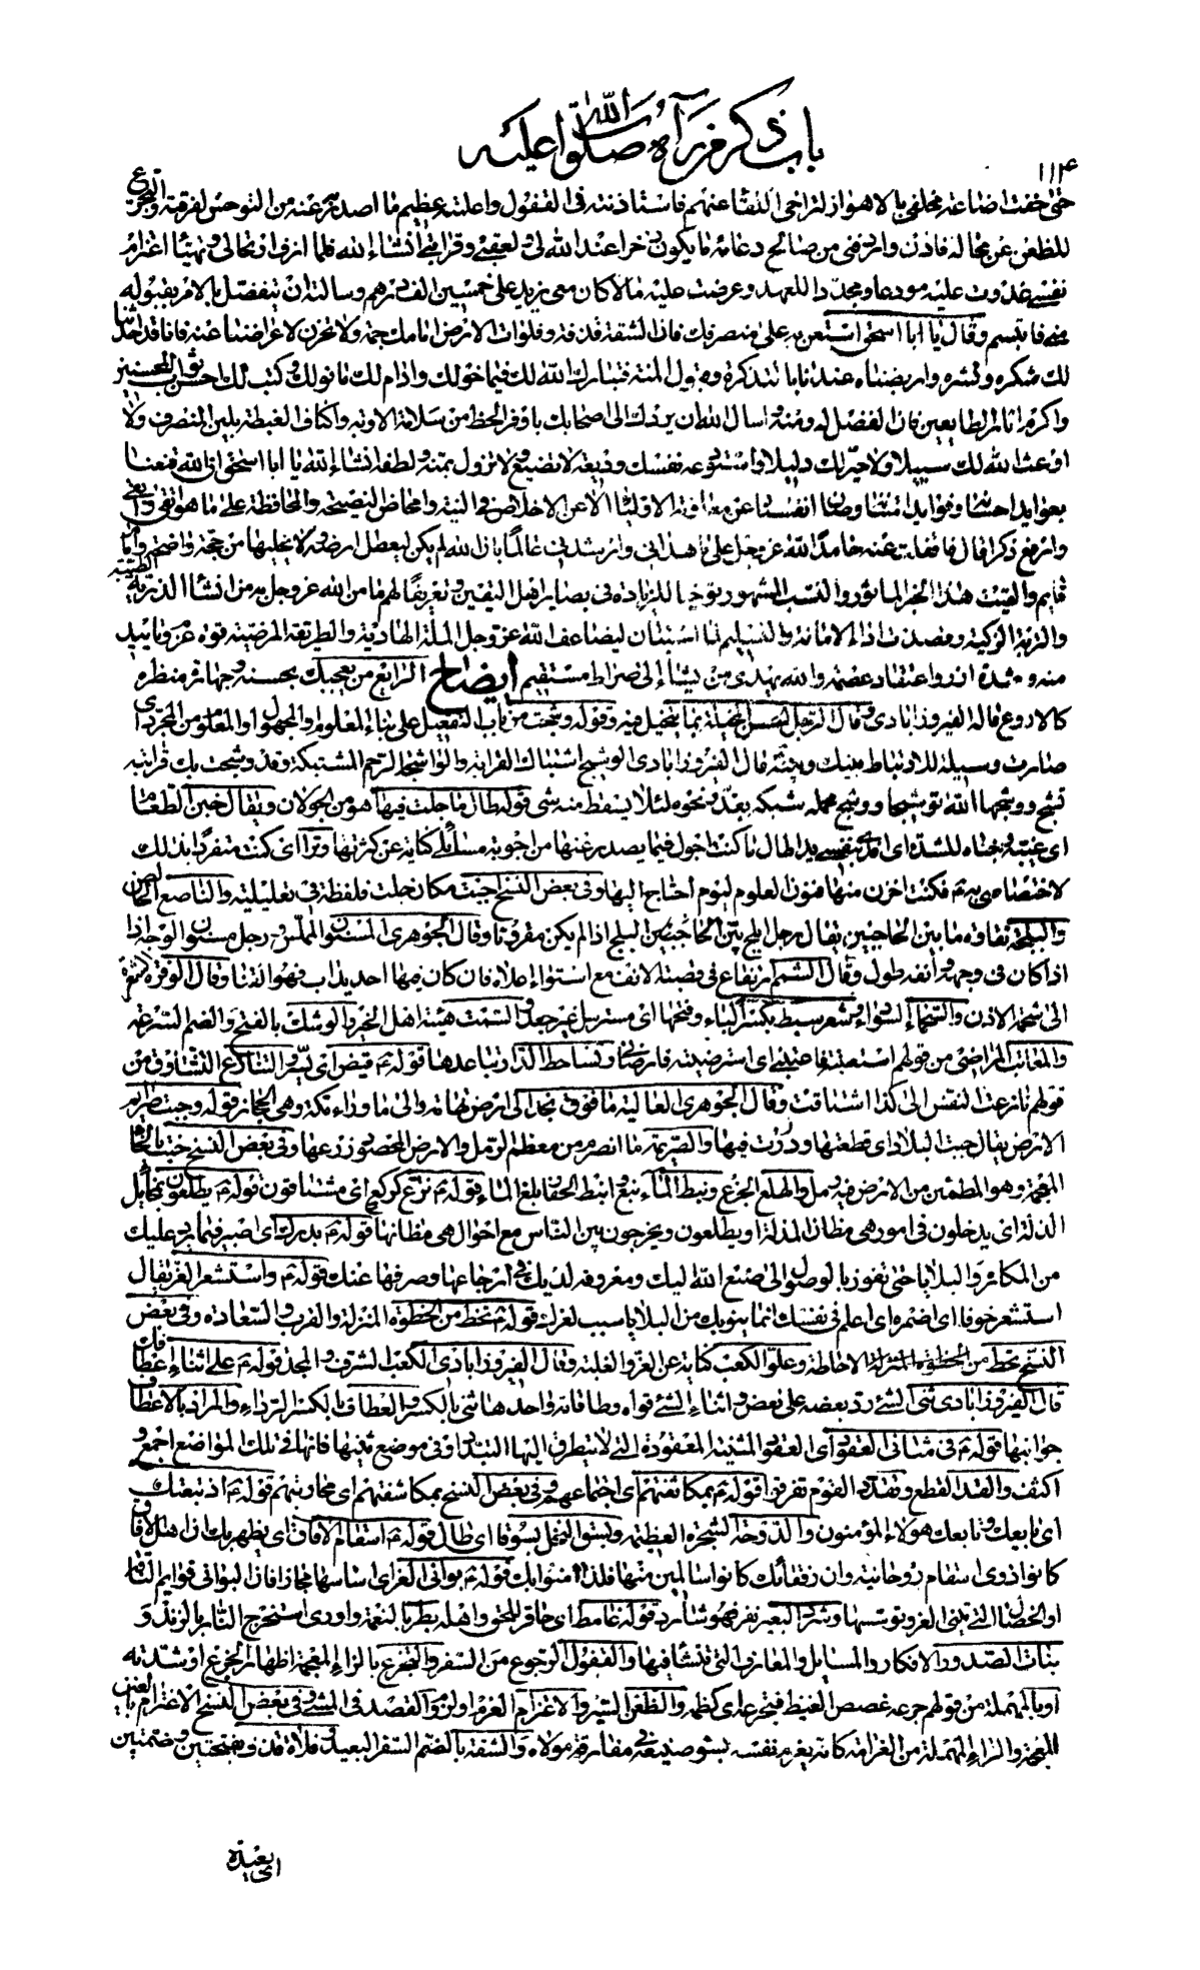 باب ذكر من رآه صلوات الله عليه
۱۱۴
حتى خفت اضاعة مخلفي بالاهواز لتراخي اللقاء عنهم فاستأذنته في القفول واعلمته عظيم ما اصدر به عنه من التوحش لفرقته والتجرع
للظعن عن محاله فاذن واردفني من صالح دعائه ما يكون ذخرا عند الله لي ولعقبي وقرابتي انشاء الله فلما ازف ارتحالي وتهيئا اعتزام
نفسي غدوت عليه مودعا ومجددا للعهد وعرضت عليه مالا كان معي يزيد على خمسين الف درهم وسألته ان يتفضل بالامر بقبوله
منه فابتسم وقال يا ابا اسحق استعن به على منصرفك فان الشقة قذفة وفلوات الارض امامك جمة ولا تحزن لاعراضنا عنه فانا قد احدثنا
لك شكره ونشره واربضناه عندنا بالتذكرة وقبول المنة فتبارك الله لك فيما خولك وادام لك ما نولك وكتب لك احسن ثواب المحسنين
واكرم آثار الطايعين فان الفضل له ومنه واسال الله ان يردك الى اصحابك باوفر الحظ من سلامة الاوبة واكناف الغبطة بلين المنصرف ولا
اوعث الله لك سبيلا ولا حير لك دليلا واستودعه نفسك وديعة لا تضيع ولا تزول بمنه ولطفه انشاء الله يا ابا اسحق ان الله قنعنا
بعوايد احسانه وفوايد امتنانه وصان انفسنا عن معاونة الاولياء الا عن الاخلاص في النية وامحاض النصيحة والمحافظة على ما هو اتقى وابقى
وارفع ذكرا قال فاقفلت عنه حامدا لله عز وجل على ما هداني وارشدني عالما بان الله لم يكن ليعطل ارضه ولا يخليها من حجة واضحة وامام
قايم والقيت هذا الخبر الماثور والنسب المشهور توخيا للزيادة في بصاير اهل اليقين وتعريفا لهم ما من الله عز وجل به من انشاء الذرية الطيبة
والتربة الزكية وقصدت اداء الامانة والتسليم لما استبان ليضاعف الله عز وجل الملة الهادية والطريقة المرضية قوة عزم وتاييد
نية وشدة ازر واعتقاد عصمة والله يهدي من يشاء الى صراط مستقيم ايضاح الرايع من يعجبك بحسنه وجهارة منظره
كالاروع قاله الفيروزابادي وقال الرجل الحسن المخيلة بما يتخيل فيه وقوله وشجت من باب التفعيل على بناء المعلوم او المجهول او المعلوم من المجرد اي
صارت وسيلة للارتباط بينك وبينه قال الفيروزابادي الوشيج اشتباك القرابة والواشجة الرحم المشتبكة وقد وشجت بك قرابته
تشج ووشجها الله توشيجا ووشج محمله شبكه بقد ونحوه لئلا يسقط منه شيء قوله طال ما جلت فيها هو من الجولان ويقال خبن الطعام
اي غيبه وخباه للشدة اي افدي بنفسي يدا طال ما كنت اجول فيما يصدر عنها من اجوبة مسائلي كناية عن كثرتها وترا اي كنت متفردا بذلك
لاختصاصي به فكنت اخزن منها فنون العلوم ليوم احتاج اليها وفي بعض النسخ اجبت مكان جلت فلفظة في تعليلية والناصع الخالص
والبلجة نقاوة ما بين الحاجبين يقال رجل ابلج بين البلج اذا لم يكن مقرونا وقال الجوهري المسنون المملس ورجل مسنون الوجه اذا
اذا كان في وجهه وانفه طول وقال الشمم ارتفاع في قصبة الانف مع استواء اعلاه فان كان فيها احديداب فهو القنا وقال الوفرة الشعرة
الى شحمة الاذن والسحماء السوداء وشعر سبط بكسر الباء وفتحها اي مسترسل غير جعد والسمت هيئة اهل الخير والوشك بالفتح والضم السرعة
والمعاتب المراضي من قولهم استعتبته فاعتبني اي استرضيته فارضاني وتشاحط الدار تباعدها قوله قيض اي يسر والتنازع التشاوق من
قولهم نازعت النفس الى كذا اشتاقت وقال الجوهري العالية ما فوق نجد الى ارض تهامة والى ما وراء مكة وهي الحجاز قوله وجبت صرايم
الارض يقال جبت البلاد اي قطعتها ودرت فيها والصريمة ما انصرم من معظم الرمل والارض المحصود زرعها وفي بعض النسخ خبت بالخاء
المعجمة وهو المطمئن من الارض فيه رمل والهلع الجزع ونبط الماء نبع وانبط الحفار بلغ الماء قوله نزع كركع اي مشتاقون قوله يطلعون بمخايل
الذلة اي يدخلون في امور هي مظان المذلة او يطلعون ويخرجون بين الناس مع احوال هي مظانها قوله بدرك اي اصبر فيما يرد عليك
من المكاره والبلايا حتى تفوز بالوصول الى صنع الله اليك ومعروفه لديك في ارجاعها وصرفها عنك قوله واستشعر العز يقال
استشعر خوفا اي اضمره اي اعلم في نفسك ان ما ينوبك من البلايا سبب لعزك قوله تحظ من الحظوة المنزلة والقرب والسعادة وفي بعض
النسخ تحط من الاحاطة وعلو الكعب كناية عن العز والغلبة وقال الفيروزابادي الكعب الشرف والمجد قوله على اثناء اعطافك
قال الفيروزابادي ثنى الشيء رد بعضه على بعض واثناء الشيء قواه وطاقاته واحدها ثني بالكسر والعطاف بالكسر الرداء والمراد بالاعطاف
جوانبها قوله في مثاني العقود اي العقود المثنية المعقودة التي لا يتطرق اليها التبدد او في موضع ثنيها فانها في تلك المواضع اجمع و
اكثف والقد القطع وتقدد القوم تفرقوا قوله بمكاثفتهم اي اجتماعهم وفي بعض النسخ بمكاشفتهم اي محاربتهم قوله اذ تبعتك
اي بايعك وتابعك هؤلاء المؤمنون والدوحة الشجرة العظيمة وبسق النخل بسوقا اي طال قوله اسقام الآفاق اي يظهر بك ان اهل الآفاق
كانوا ذوي اسقام روحانية وان رفقائك كانوا سالمين منها فلذا امنوا بك قوله بواني العز اي اساسها مجازا فان البواني قوايم الناقة
او الخصال التي تبني العز وتؤسسها وشرد البعير نفر فهو شارد قوله غامط اي حاقر للحق واهله بطر بالنعمة واورى استخرج النار بالزند و
بنات الصدور الافكار والمسايل والمعارف التي تنشأ فيها والقفول الرجوع من السفر والتجزع بالزاء المعجمة اظهار الجزع او شدته
او بالمهملة من قولهم جرعه غصص الغيظ فتجرعه اي كظمه والظعن السير والاعتزام العزم او لزوم القصد في المشي وفي بعض النسخ الاغترام بالغين
المعجمة والراء المهملة من الغرامة كانه يغرم نفسه بسوء صنيعه في مفارقة مولاه والشقة بالضم السفر البعيد وفلاة قذف بفتحتين وضمتين
اي بعيدة